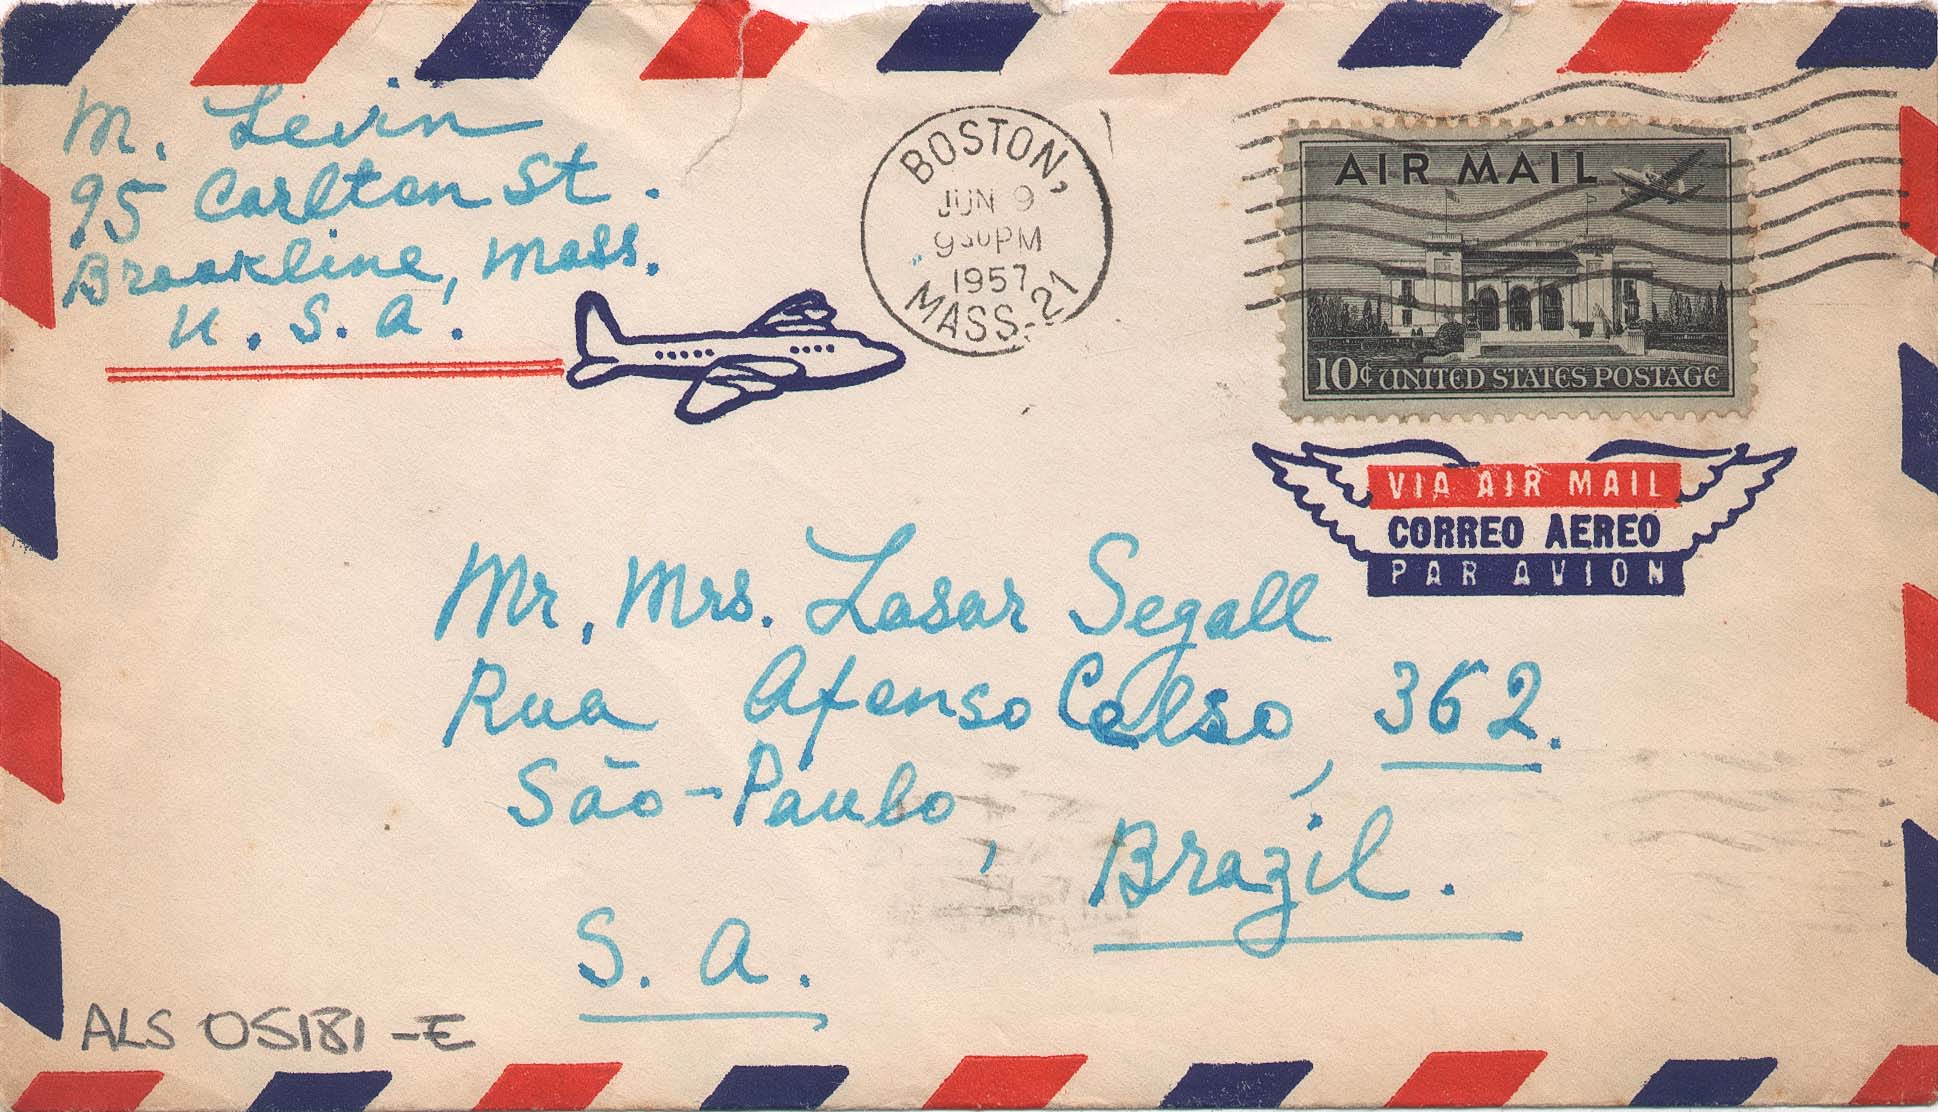 M. Levin
95 Carlton St.
Brookline, Mass.
U.S.A.
BOSTON,
JUN 9
9 30 PM
1957
MASS. 21
AIR MAIL
10¢ UNITED STATES POSTAGE
VIA AIR MAIL
CORREO AEREO
PAR AVION
Mr, Mrs. Lasar Segall
Rua Afonso Celso, 362.
São-Paulo, Brazil.
S. A.
ALS 05181-E